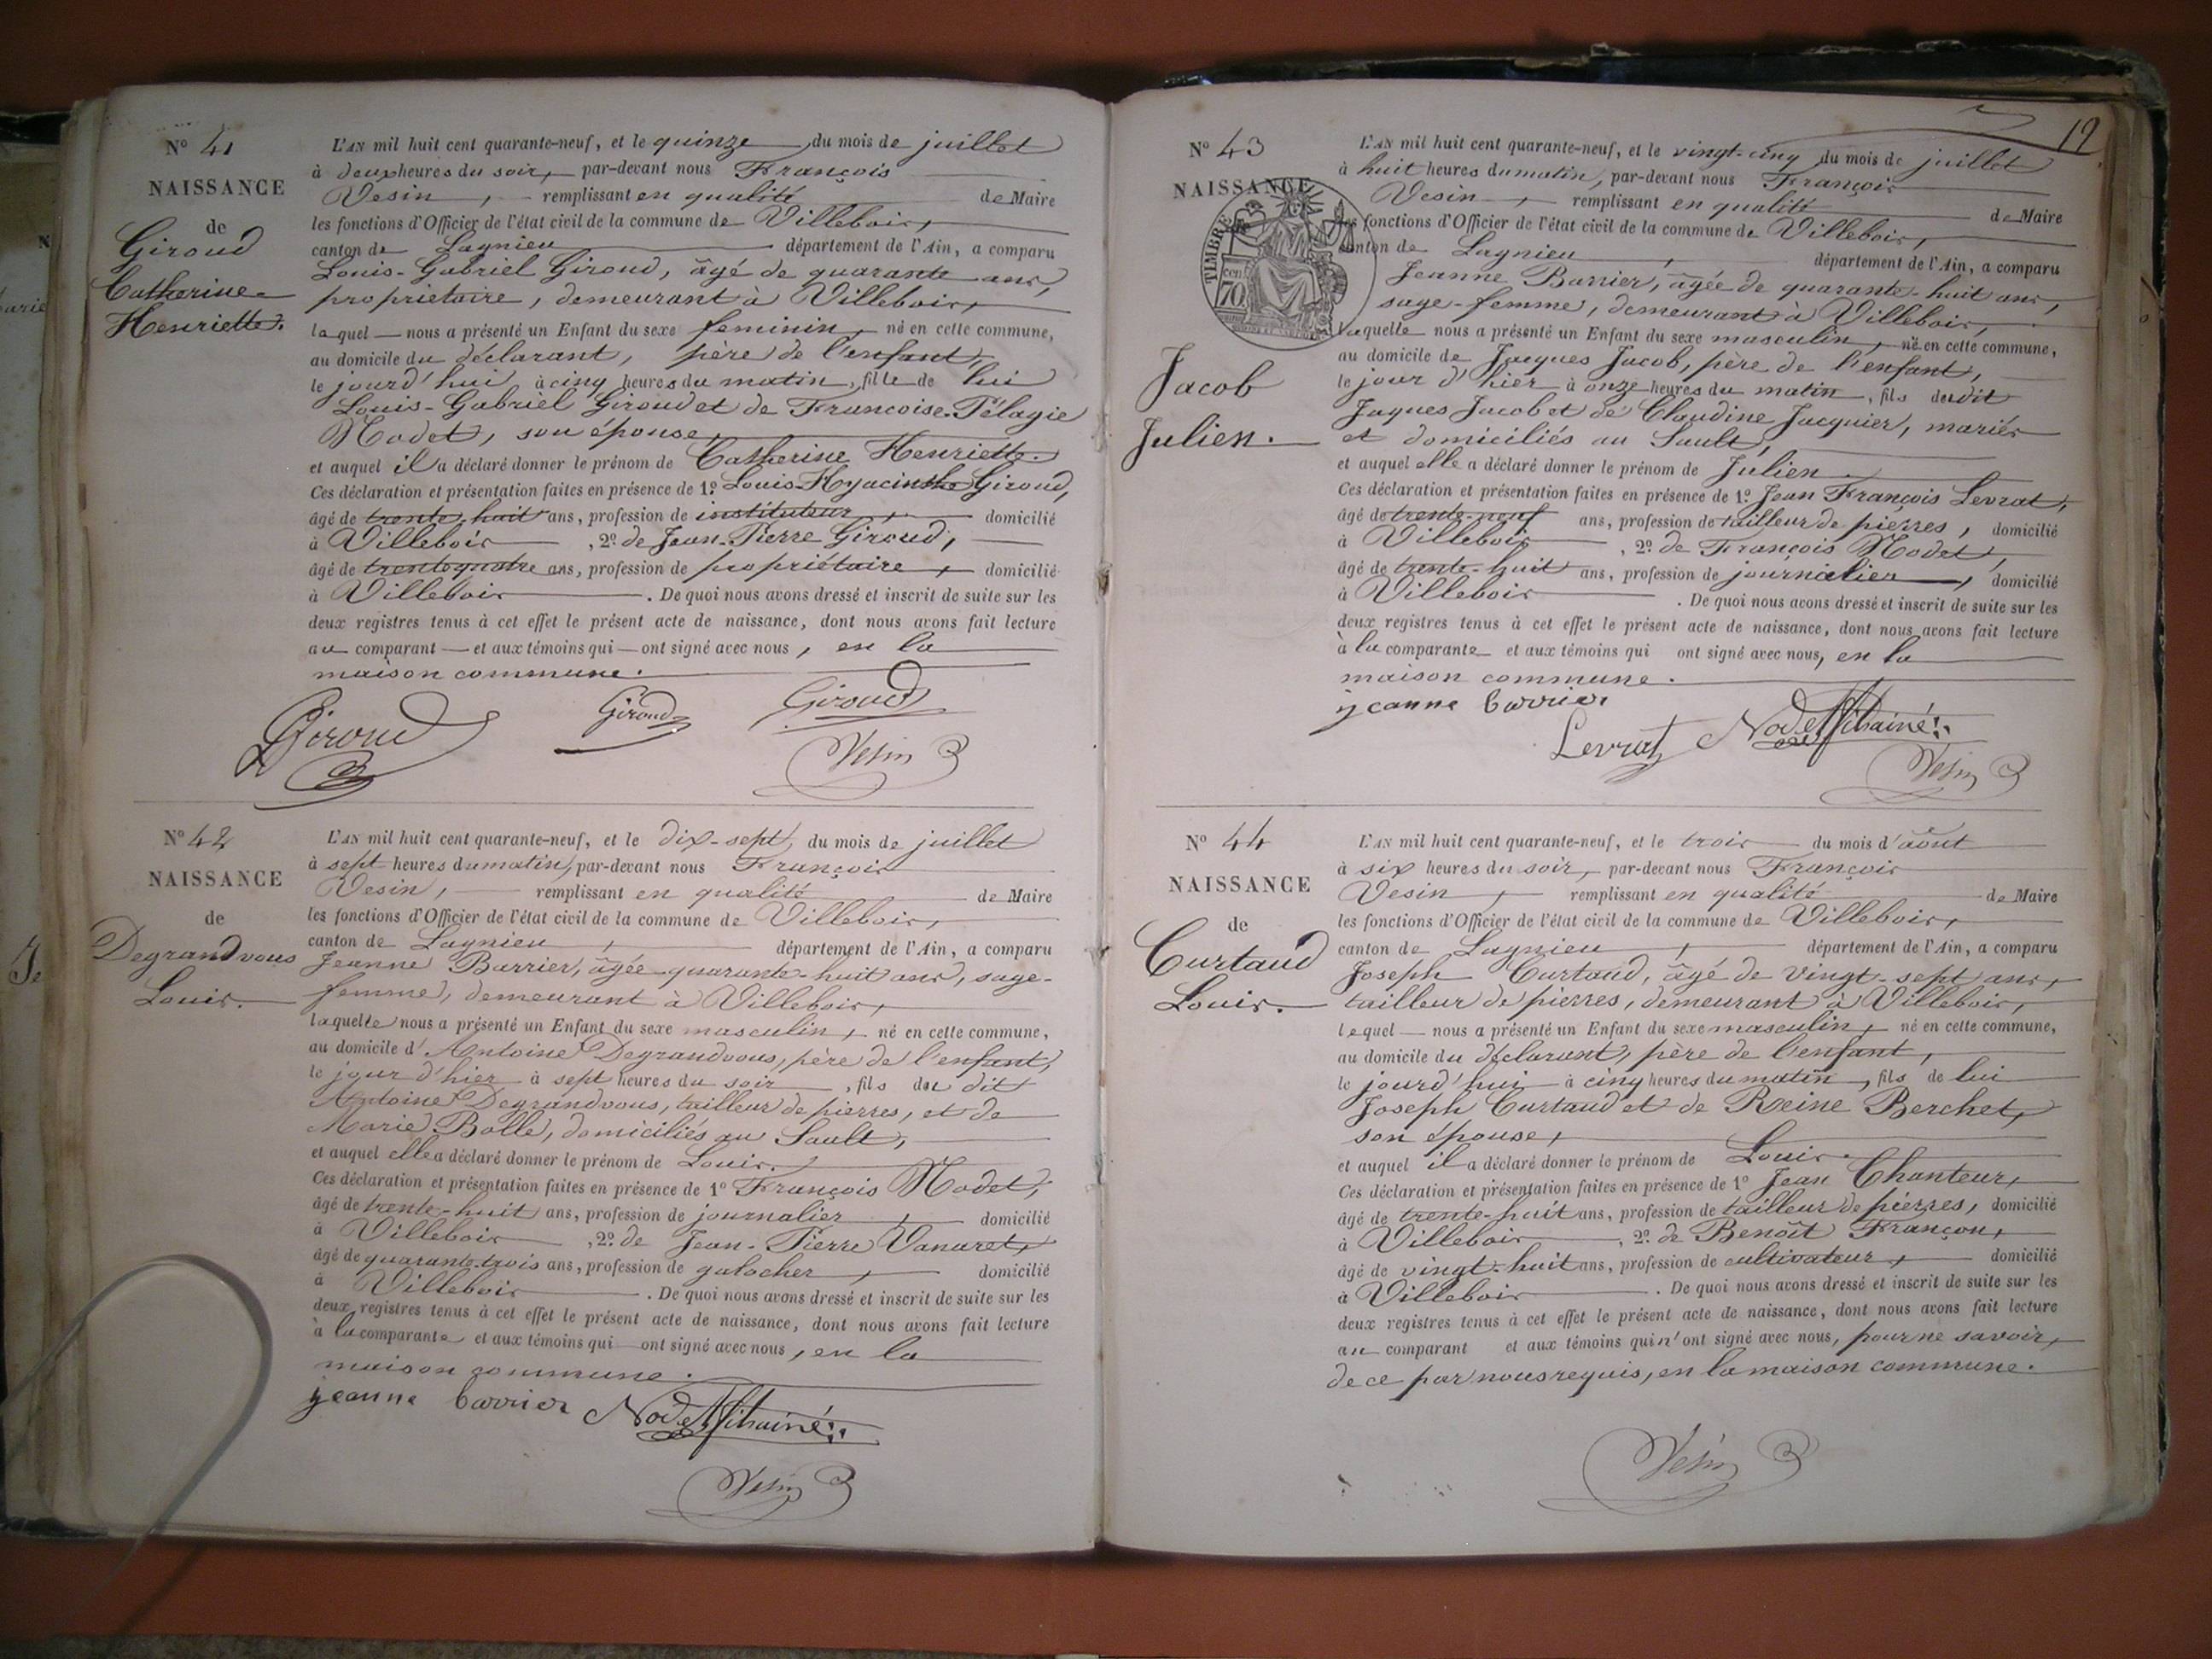 N° 41
NAISSANCE
de
Giroud
Catherine
Henriette.
L'AN mil huit cent quarante-neuf, et le quinze du mois de juillet
à deux heures du soir, par-devant nous François
Vesin, remplissant en qualité de Maire
les fonctions d'Officier de l'état civil de la commune de Villebois,
canton de Lagnieu département de l'Ain, a comparu
Louis-Gabriel Giroud, âgé de quarante ans,
propriétaire, demeurant à Villebois,
lequel nous a présenté un Enfant du sexe feminin, né en cette commune,
au domicile du déclarant, père de l'enfant,
le jourd'hui à cinq heures du matin, fille de lui
Louis-Gabriel Giroud et de Francoise-Pélagie
Nodet, son épouse,
et auquel il a déclaré donner le prénom de Catherine Henriette.
Ces déclaration et présentation faites en présence de 1° Louis-Hyacinthe Giroud,
âgé de trente-huit ans, profession de instituteur, domicilié
à Villebois, 2° de Jean-Pierre Giroud,
âgé de trente quatre ans, profession de propriétaire, domicilié
à Villebois. De quoi nous avons dressé et inscrit de suite sur les
deux registres tenus à cet effet le présent acte de naissance, dont nous avons fait lecture
au comparant et aux témoins qui ont signé avec nous, en la
maison commune.
Giroud Giroud Giroud
Vesin
N° 42
NAISSANCE
de
Degrandvous
Louis.
L'AN mil huit cent quarante-neuf, et le dix-sept, du mois de juillet
à sept heures du matin, par-devant nous François
Vesin, remplissant en qualité de Maire
les fonctions d'Officier de l'état civil de la commune de Villebois,
canton de Lagnieu, département de l'Ain, a comparu
Jeanne Barrier, âgée quarante-huit ans, sage-
femme, demeurant à Villebois,
laquelle nous a présenté un Enfant du sexe masculin, né en cette commune,
au domicile d'Antoine Degrandvous, père de l'enfant,
le jour d'hier à sept heures du soir, fils du dit
Antoine Degrandvous, tailleur de pierres, et de
Marie Bolle, domiciliés au Sault,
et auquel elle a déclaré donner le prénom de Louis.
Ces déclaration et présentation faites en présence de 1° François Nodet,
âgé de trente-huit ans, profession de journalier, domicilié
à Villebois, 2° de Jean-Pierre Vanaret,
âgé de quarante-trois ans, profession de galocher, domicilié
à Villebois. De quoi nous avons dressé et inscrit de suite sur les
deux registres tenus à cet effet le présent acte de naissance, dont nous avons fait lecture
à la comparante et aux témoins qui ont signé avec nous, en la
maison commune.
jeanne barrier Nodet fils ainé
Vesin
12
N° 43
NAISSANCE
TIMBRE
cen. 70
Jacob
Julien.
L'AN mil huit cent quarante-neuf, et le vingt-cinq du mois de juillet
à huit heures du matin, par-devant nous François
Vesin, remplissant en qualité de Maire
les fonctions d'Officier de l'état civil de la commune de Villebois,
canton de Lagnieu, département de l'Ain, a comparu
Jeanne Barrier, âgée de quarante-huit ans,
sage-femme, demeurant à Villebois,
laquelle nous a présenté un Enfant du sexe masculin, né en cette commune,
au domicile de Jacques Jacob, père de l'enfant,
le jour d'hier à onze heures du matin, fils dudit
Jaques Jacob et de Claudine Jacquier, mariés
et domiciliés au Sault,
et auquel elle a déclaré donner le prénom de Julien.
Ces déclaration et présentation faites en présence de 1° Jean François Levrat,
âgé de trente-neuf ans, profession de tailleur de pierres, domicilié
à Villebois, 2° de François Nodet,
âgé de trente-huit ans, profession de journalier, domicilié
à Villebois. De quoi nous avons dressé et inscrit de suite sur les
deux registres tenus à cet effet le présent acte de naissance, dont nous avons fait lecture
à la comparante et aux témoins qui ont signé avec nous, en la
maison commune.
jeanne barrier
Levrat Nodet fils ainé
Vesin
N° 44
NAISSANCE
de
Curtaud
Louis.
L'AN mil huit cent quarante-neuf, et le trois du mois d'août
à six heures du soir, par-devant nous François
Vesin, remplissant en qualité de Maire
les fonctions d'Officier de l'état civil de la commune de Villebois,
canton de Lagnieu, département de l'Ain, a comparu
Joseph Curtaud, âgé de vingt-sept ans,
tailleur de pierres, demeurant à Villebois,
lequel nous a présenté un Enfant du sexe masculin, né en cette commune,
au domicile du déclarant, père de l'enfant,
le jourd'hui à cinq heures du matin, fils de lui
Joseph Curtaud et de Reine Berchet,
son épouse,
et auquel il a déclaré donner le prénom de Louis.
Ces déclaration et présentation faites en présence de 1° Jean Chanteur,
âgé de trente-huit ans, profession de tailleur de pierres, domicilié
à Villebois, 2° de Benoît Françon,
âgé de vingt-huit ans, profession de cultivateur, domicilié
à Villebois. De quoi nous avons dressé et inscrit de suite sur les
deux registres tenus à cet effet le présent acte de naissance, dont nous avons fait lecture
au comparant et aux témoins qui n'ont signé avec nous, pour ne savoir,
de ce par nous requis, en la maison commune.
Vesin